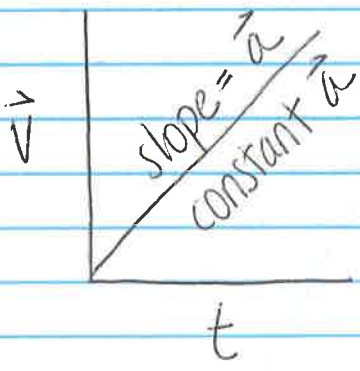 slope = a⃗
constant a⃗
v⃗
t